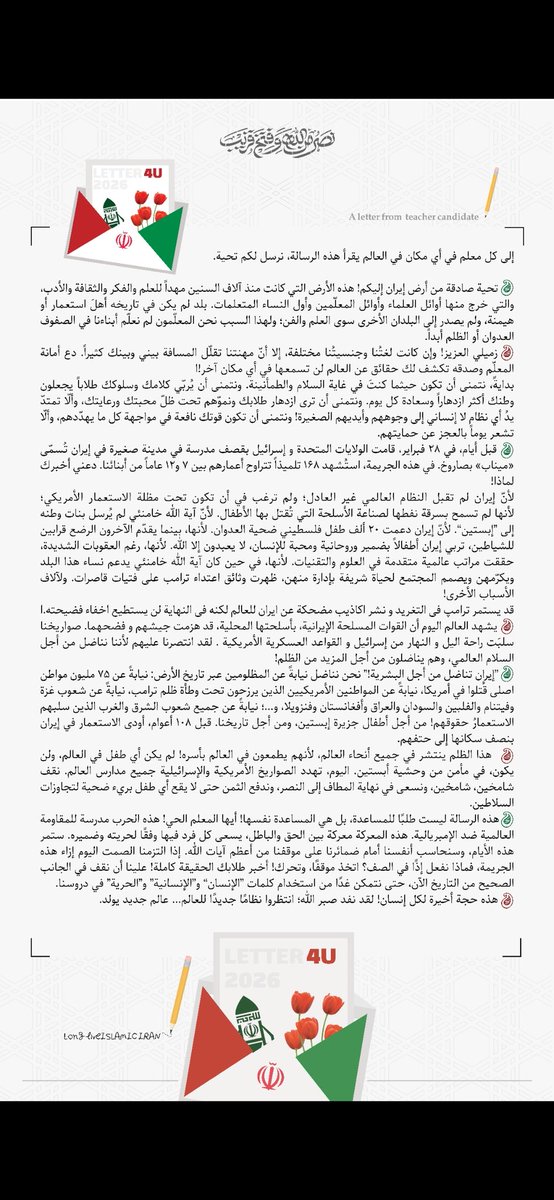 نصر من الله وفتح قريب
LETTER 4U
2026
A letter from teacher candidate
إلى كل معلم في أي مكان في العالم يقرأ هذه الرسالة، نرسل لكم تحية.
تحية صادقة من أرض إيران إليكم! هذه الأرض التي كانت منذ آلاف السنين مهداً للعلم والفكر والثقافة والأدب،
والتي خرج منها أوائل العلماء وأوائل المعلّمين وأول النساء المتعلمات. بلد لم يكن في تاريخه أهلَ استعمار أو
هيمنة، ولم يصدر إلى البلدان الأخرى سوى العلم والفن؛ ولهذا السبب نحن المعلّمون لم نعلّم أبناءنا في الصفوف
العدوان أو الظلم أبداً.
زميلي العزيز! وإن كانت لغتُنا وجنسيتُنا مختلفة، إلا أنّ مهنتنا تقلّل المسافة بيني وبينك كثيراً. دع أمانة
المعلّم وصدقه تكشف لك حقائق عن العالم لن تسمعها في أي مكان آخر!!
بدايةً، نتمنى أن تكون حيثما كنتَ في غاية السلام والطمأنينة. ونتمنى أن يُربّي كلامك وسلوكك طلاباً يجعلون
وطنك أكثر ازدهاراً وسعادة كل يوم. ونتمنى أن ترى ازدهار طلابك ونموّهم تحت ظلّ محبتك ورعايتك، وألّا تمتدّ
يدُ أي نظامٍ لا إنساني إلى وجوههم وأيديهم الصغيرة! ونتمنى أن تكون قوتك نافعة في مواجهة كل ما يهدّدهم، وألّا
تشعر يوماً بالعجز عن حمايتهم.
قبل أيام، في ٢٨ فبراير، قامت الولايات المتحدة و إسرائيل بقصف مدرسة في مدينة صغيرة في إيران تُسمّى
«ميناب» بصاروخ. في هذه الجريمة، استُشهد ١٦٨ تلميذاً تتراوح أعمارهم بين ٧ و١٢ عاماً من أبنائنا. دعني أخبرك
لماذا!
لأنّ إيران لم تقبل النظام العالمي غير العادل؛ ولم ترغب في أن تكون تحت مظلة الاستعمار الأمريكي؛
لأنها لم تسمح بسرقة نفطها لصناعة الأسلحة التي تُقتل بها الأطفال. لأنّ آية الله خامنئي لم يُرسل بنات وطنه
إلى "إبستين". لأنّ إيران دعمت ٢٠ ألف طفل فلسطيني ضحية العدوان. لأنها، بينما يقدّم الآخرون الرضع قرابين
للشياطين، تربي إيران أطفالاً بضمير وروحانية ومحبة للإنسان، لا يعبدون إلا الله. لأنها، رغم العقوبات الشديدة،
حققت مراتب عالمية متقدمة في العلوم والتقنيات. لأنها، في حين كان آية الله خامنئي يدعم نساء هذا البلد
ويكرّمهن ويصمم المجتمع لحياة شريفة بإدارة منهن، ظهرت وثائق اعتداء ترامب على فتيات قاصرات. ولآلاف
الأسباب الأخرى!
قد يستمر ترامپ في التغريد و نشر اكاذيب مضحكة عن ايران للعالم لكنه فى النهاية لن يستطيع اخفاء فضيحته.ا
يشهد العالم اليوم أن القوات المسلحة الإيرانية، بأسلحتها المحلية، قد هزمت جيشهم و فضحهما. صواريخنا
سلبَت راحة اليل و النهار من إسرائيل و القواعد العسكرية الأمريكية . لقد انتصرنا عليهم لأننا نناضل من أجل
السلام العالمي، وهم يناضلون من أجل المزيد من الظلم!
"إيران تناضل من أجل البشرية!" نحن نناضل نيابةً عن المظلومين عبر تاريخ الأرض: نيابةً عن ٧٥ مليون مواطن
اصلى قُتلوا في أمريكا، نيابةً عن المواطنين الأمريكيين الذين يرزحون تحت وطأة ظلم ترامب، نيابةً عن شعوب غزة
وفيتنام والفلبين والسودان والعراق وأفغانستان وفنزويلا، و...؛ نيابةً عن جميع شعوب الشرق والغرب الذين سلبهم
الاستعمارُ حقوقهم! من أجل أطفال جزيرة إبستين، ومن أجل تاريخنا. قبل ١٠٨ أعوام، أودى الاستعمار في إيران
بنصف سكانها إلى حتفهم.
هذا الظلم ينتشر في جميع أنحاء العالم، لأنهم يطمعون في العالم بأسره! لم يكن أي طفل في العالم، ولن
يكون، في مأمن من وحشية أبستين. اليوم، تهدد الصواريخ الأمريكية والإسرائيلية جميع مدارس العالم. نقف
شامخين، شامخين، ونسعى في نهاية المطاف إلى النصر، وندفع الثمن حتى لا يقع أي طفل بريء ضحية لتجاوزات
السلاطين.
هذه الرسالة ليست طلبًا للمساعدة، بل هي المساعدة نفسها! أيها المعلم الحي! هذه الحرب مدرسة للمقاومة
العالمية ضد الإمبريالية. هذه المعركة معركة بين الحق والباطل، يسعى كل فرد فيها وفقًا لحريته وضميره. ستمر
هذه الأيام، وسنحاسب أنفسنا أمام ضمائرنا على موقفنا من أعظم آيات الله. إذا التزمنا الصمت اليوم إزاء هذه
الجريمة، فماذا نفعل إذًا في الصف؟ اتخذ موقفًا، وتحرك! أخبر طلابك الحقيقة كاملة! علينا أن نقف في الجانب
الصحيح من التاريخ الآن، حتى نتمكن غدًا من استخدام كلمات "الإنسان" و"الإنسانية" و"الحرية" في دروسنا.
هذه حجة أخيرة لكل إنسان! لقد نفد صبر الله؛ انتظروا نظامًا جديدًا للعالم... عالم جديد يولد.
LETTER 4U
2026
Long live ISLAMIC IRAN